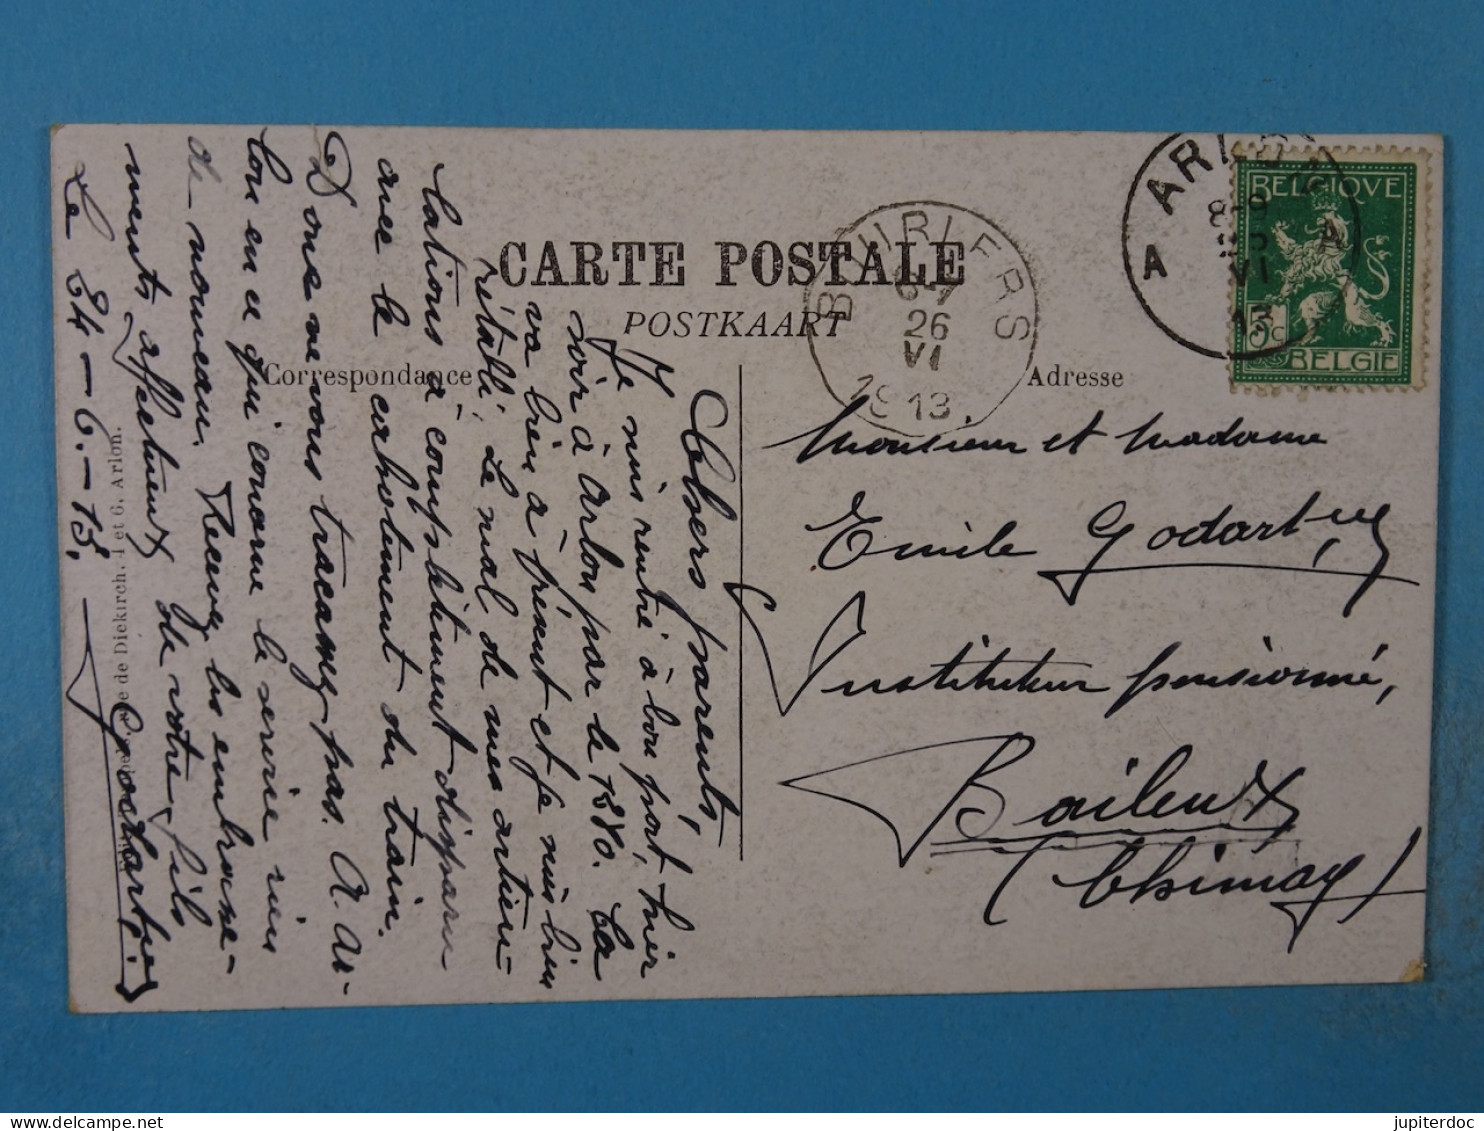 CARTE POSTALE
POSTKAART
Correspondance
Adresse
ARLON
A A
8-9
VI
13
BOURLERS
6-7
26
VI
1913
BELGIQUE
5c
BELGIË
Monsieur et Madame
Emile Godart
Instituteur pensionné,
Baileux
(Chimay)
Chers parents,
Je suis rentré à bon port, hier
soir à Arlon par le 1880. Ça
va bien à présent et je suis bien
rétabli. Le mal de mes articu-
lations a complètement disparu
avec le cahotement du train.
Donc ne vous tracassez pas. A Ar-
lon en ce qui concerne le service rien
de nouveau. Recevez les embrasse-
ments affectueux de votre fils
Le 24-6.-13.
Godart
de Diekirch, 4 et 6, Arlon.
jupiterdoc
delcampe.net